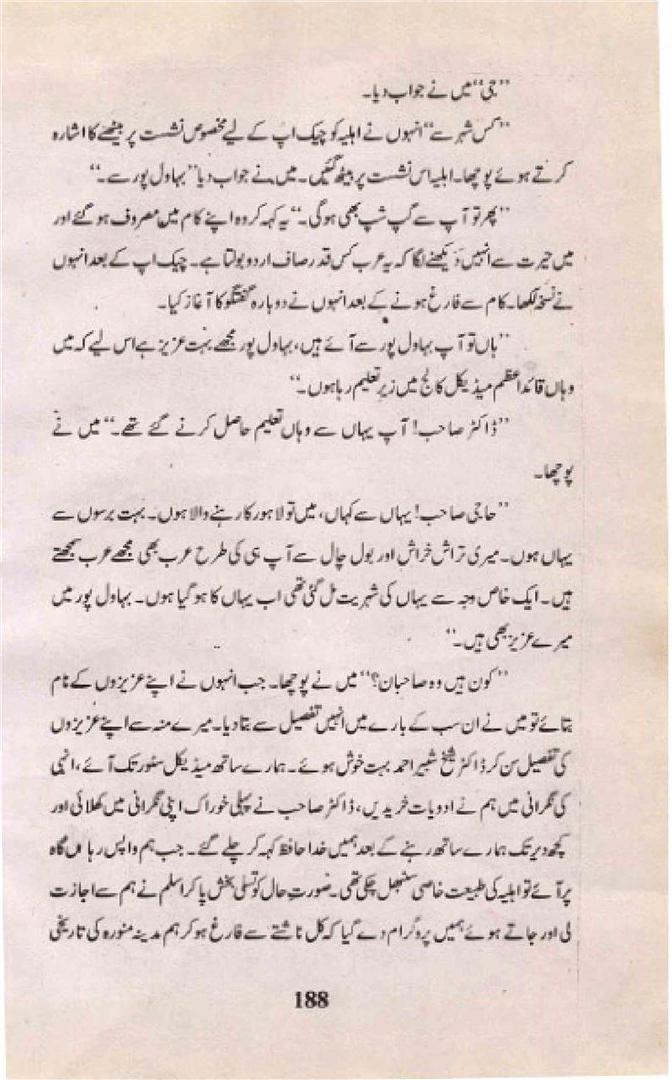 ”جی“ میں نے جواب دیا۔
”کس شہر سے“ انہوں نے اہلیہ کو چیک اپ کے لیے مخصوص نشست پر بیٹھنے کا اشارہ
کرتے ہوئے پوچھا۔ اہلیہ اس نشست پر بیٹھ گئیں۔ میں نے جواب دیا ”بہاول پور سے۔“
”پھر تو آپ سے گپ شپ بھی ہوگی۔“ یہ کہہ کر وہ اپنے کام میں مصروف ہو گئے اور
میں حیرت سے انہیں دیکھنے لگا کہ یہ عرب کس قدر صاف اردو بولتا ہے۔ چیک اپ کے بعد انہوں
نے نسخہ لکھا۔ کام سے فارغ ہونے کے بعد انہوں نے دوبارہ گفتگو کا آغاز کیا۔
”ہاں تو آپ بہاول پور سے آئے ہیں، بہاول پور مجھے بہت عزیز ہے اس لیے کہ میں
وہاں قائداعظم میڈیکل کالج میں زیر تعلیم رہا ہوں۔“
”ڈاکٹر صاحب! آپ یہاں سے وہاں تعلیم حاصل کرنے گئے تھے۔“ میں نے
پوچھا۔
”حاجی صاحب! یہاں سے کہاں، میں تو لاہور کا رہنے والا ہوں۔ بہت برسوں سے
یہاں ہوں۔ میری تراش خراش اور بول چال سے آپ ہی کی طرح عرب بھی مجھے عرب سمجھتے
ہیں۔ ایک خاص وجہ سے یہاں کی شہریت مل گئی تھی اب یہاں کا ہو گیا ہوں۔ بہاول پور میں
میرے عزیز بھی ہیں۔“
”کون ہیں وہ صاحبان؟“ میں نے پوچھا۔ جب انہوں نے اپنے عزیزوں کے نام
بتائے تو میں نے ان سب کے بارے میں انہیں تفصیل سے بتا دیا۔ میرے منہ سے اپنے عزیزوں
کی تفصیل سن کر ڈاکٹر شیخ شبیر احمد بہت خوش ہوئے۔ ہمارے ساتھ میڈیکل سٹور تک آئے، انہی
کی نگرانی میں ہم نے ادویات خریدیں، ڈاکٹر صاحب نے پہلی خوراک اپنی نگرانی میں کھلائی اور
کچھ دیر تک ہمارے ساتھ رہنے کے بعد ہمیں خدا حافظ کہہ کر چلے گئے۔ جب ہم واپس رہائش گاہ
پر آئے تو اہلیہ کی طبیعت خاصی سنبھل چکی تھی۔ صورتِ حال کو تسلی بخش پا کر اسلم نے ہم سے اجازت
لی اور جاتے ہوئے ہمیں پروگرام دے گیا کہ کل ناشتے سے فارغ ہو کر ہم مدینہ منورہ کی تاریخی
188